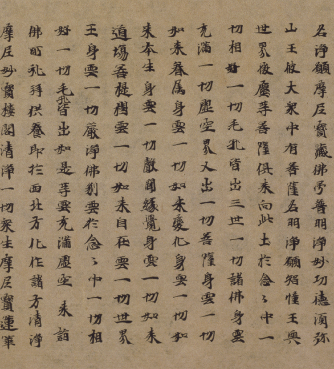 名淨願摩尼寶藏佛号普淨妙功德須弥
山王彼大衆中有菩薩名明淨願智幢王與
世界微塵等菩薩俱來向此土於念々中一
切相好一切毛孔皆出三世一切諸佛身雲
充滿一切虛空界又出一切菩薩身雲一切
如来眷属身雲一切如来變化身雲一切如
来本生身雲一切聲聞緣覺身雲一切如来
道場菩提樹雲一切如来自在雲一切世界
王身雲一切嚴淨佛剎雲於念々中一切相
好一切毛孔皆出如是等雲充滿虛空来詣
佛所礼拜供養即於西北方化作諸方清淨
摩尼妙寶樓閣清淨一切衆生摩尼寶蓮華